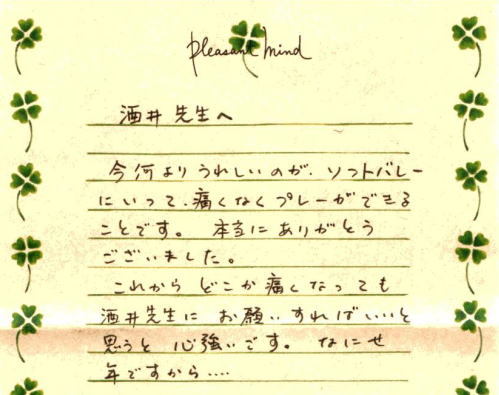 pleasant mind
酒井先生へ
今何よりうれしいのが、ソフトバレー
にいって、痛くなくプレーができる
ことです。 本当にありがとう
ございました。
これから どこか痛くなっても
酒井先生に お願いすればいいと
思うと 心強いです。 なにせ
年ですから‥‥